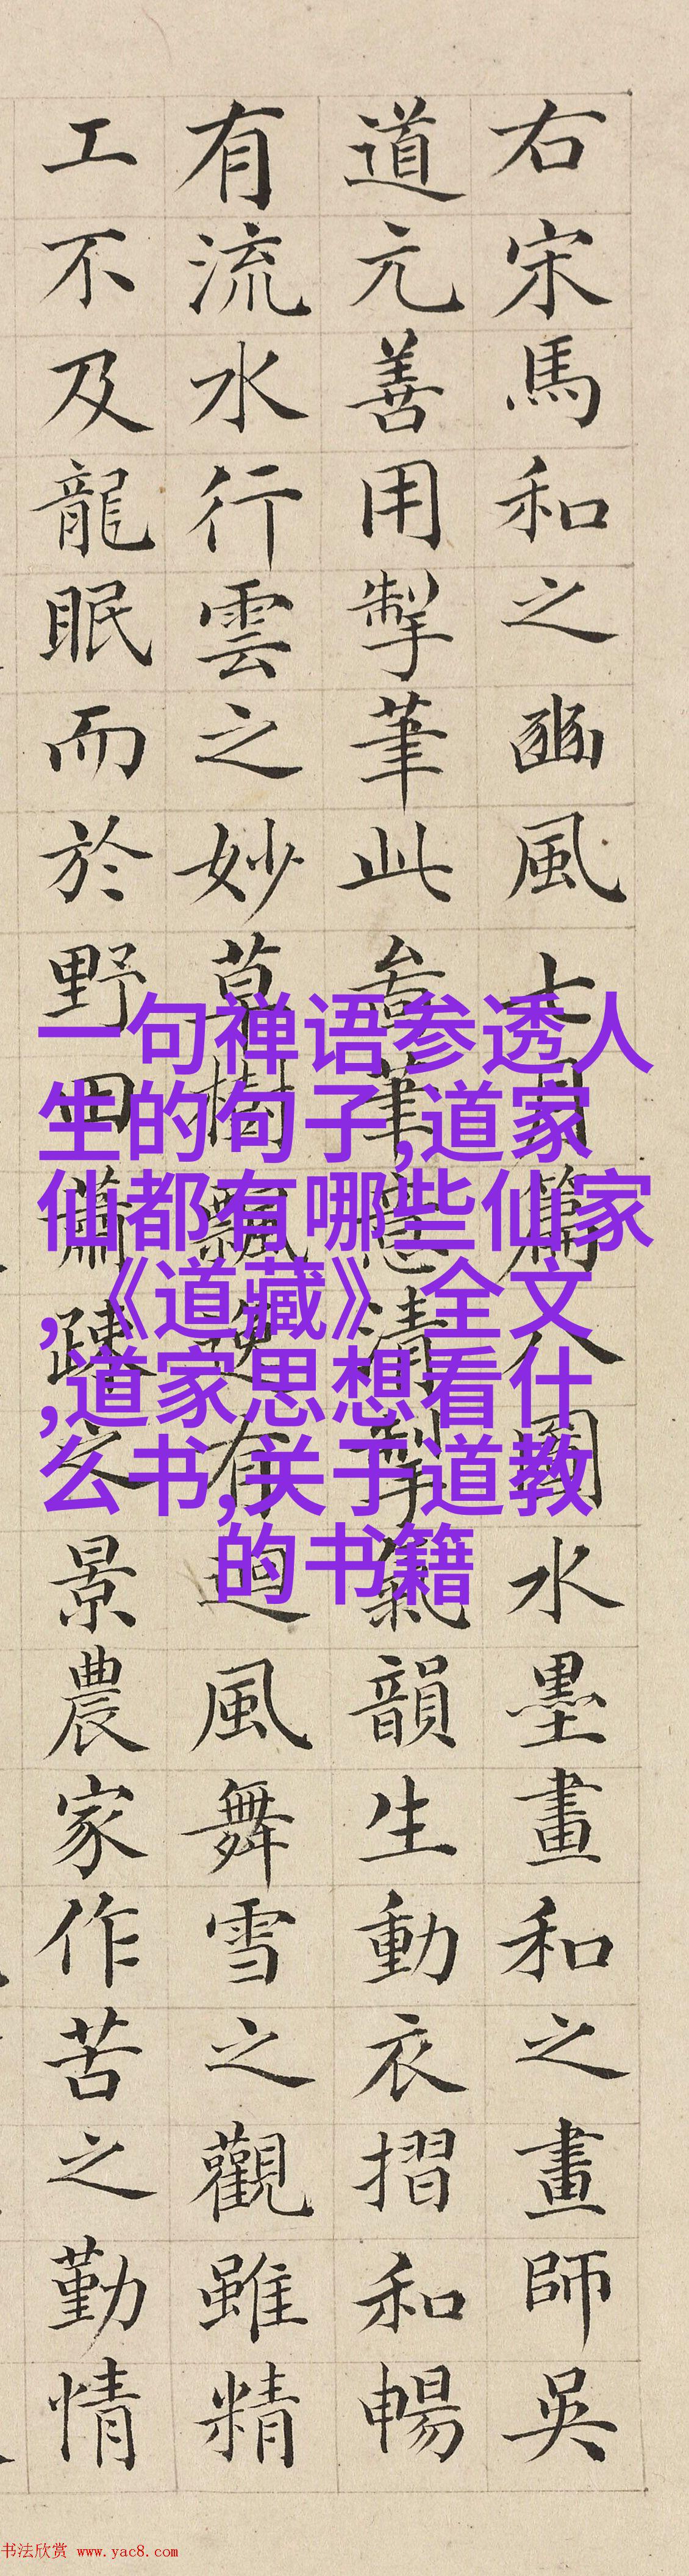 右宋馬和之豳風七月篇八圖水墨畫和之畫師吳
道元善用掣筆此筆意清掣氣韻生動衣摺和暢
有流水行雲之妙草樹飄逸有迴風舞雪之觀雖精
工不及龍眠而於野田蕭疎之景農家作苦之勤情
一句禅语参透人
生的句子,道家
仙都有哪些仙家
,《道藏》全文
,道家思想看什
么书,关于道教
的书籍
书法欣赏 www.yac8.com